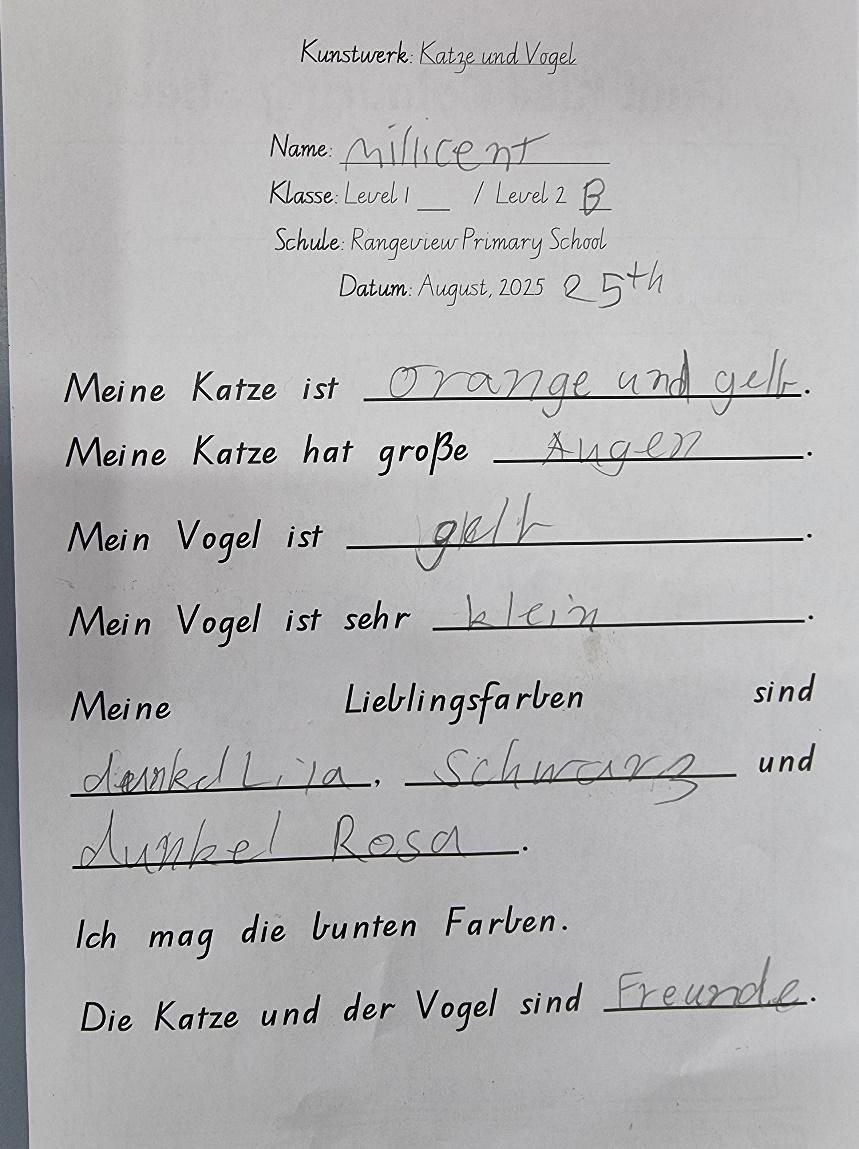 Kunstwerk: Katze und Vogel
Name: Millicent
Klasse: Level 1 __ / Level 2 B
Schule: Rangeview Primary School
Datum: August, 2025 25th
Meine Katze ist Orange und gelb.
Meine Katze hat große Augen.
Mein Vogel ist gelb.
Mein Vogel ist sehr klein.
Meine Lieblingsfarben sind
dunkel Lila, Schwarz und
dunkel Rosa.
Ich mag die bunten Farben.
Die Katze und der Vogel sind Freunde.